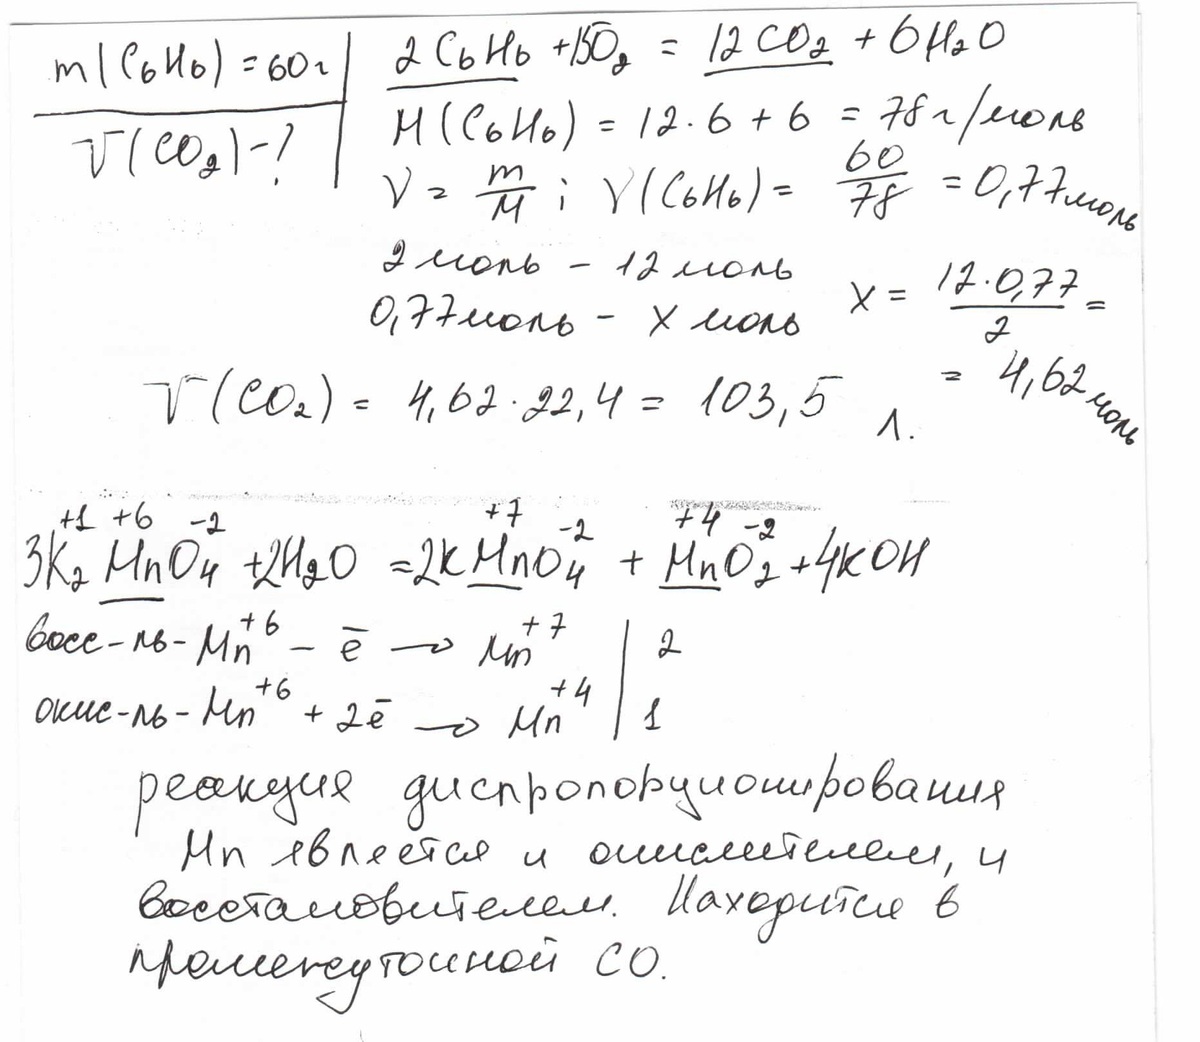 m(C6H6) = 60г
V(CO2) - ?
2C6H6 + 15O2 = 12CO2 + 6H2O
M(C6H6) = 12·6 + 6 = 78г/моль
ν = m/M ; ν(C6H6) = 60/78 = 0,77моль
2 моль - 12 моль
0,77моль - x моль
x = 12·0,77/2 =
= 4,62моль
V(CO2) = 4,62·22,4 = 103,5 л.
+1 +6 -2 +7 -2 +4 -2
3K2MnO4 + 2H2O = 2KMnO4 + MnO2 + 4KOH
восс-ль - Mn+6 - ē → Mn+7 | 2
окис-ль - Mn+6 + 2ē → Mn+4 | 1
реакция диспропорционирования
Mn является и окислителем, и
восстановителем. Находится в
промежуточной СО.